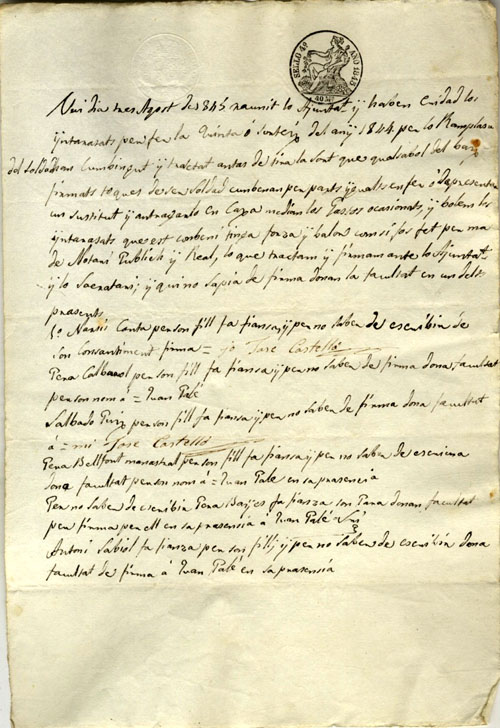 SELLO 4º AÑO 1845
40 Ms
Vui dia mes Agost de 845 raunit lo Ajuntat y haben cridad los
yntarasats pen fer la Quinta ó Sorteix del any 1844 pen lo Ramplasa
del soldadsens Combingut y tractat antas de tira la sort que qualsabol del baix
firmats toques de ser soldad cumbenan pen parts yguals en fer ó de presenta
un sustitut y antragarlo en Caxa median los Gastos ocasionats, y bolem los
yntarasats que est conbeni tinga forza y balor com si fos fet pen ma
de Notari Publich y Real, lo que tractam y firmam ante lo Ajuntat
y lo Sacratari; y qui no sapia de firma donan la facultat en un dels
presents.
So Narsis Canta pen son fill fa fiansa y pen no saben de escribin de
son Consantiment firma = Jo José Castelló
Pera Calbarol pen son fill fa fiansa y pen no saben de firma dona facultat
pen son nom á = Juan Palé
Salbado Puix pen son fill fa fiansa y pen no saben de firma dona facultat
á = mi José Castelló
Pera Bellfont manastral pen son fill fa fiansa y pen no saben de escriura
dona facultat pen son nom á = Juan Palé en sa prasencia
Pen no saben de escribin Pera Barjes fa fianza son Para donan facultat
pen firma pen ell en sa prasencia á Juan Palé
Antoni Sabiol fa fianza pen son fill y pen no saben de escribin dona
facultat de firma á Juan Palé en sa prasencia